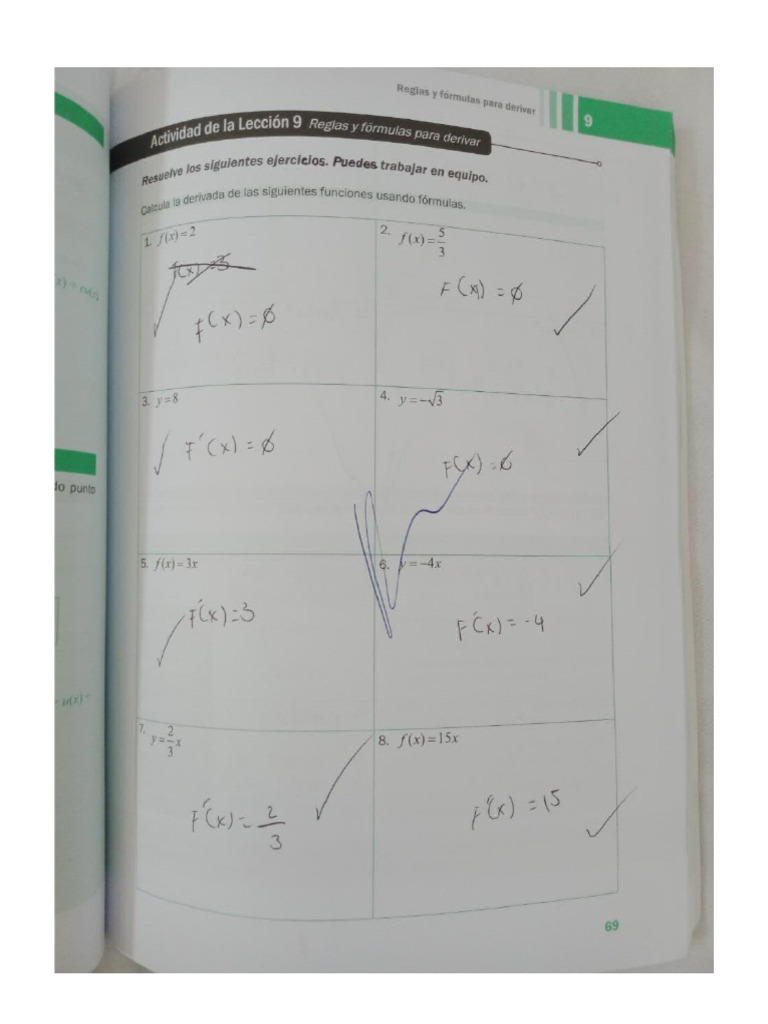 Reglas y fórmulas para derivar
9
Actividad de la Lección 9 Reglas y fórmulas para derivar
Resuelve los siguientes ejercicios. Puedes trabajar en equipo.
Calcula la derivada de las siguientes funciones usando fórmulas.
1. f(x)=2
F(x)=0
2. f(x)=5/3
F(x)=0
3. y=8
F'(x)=0
4. y=-√3
F(x)=0
5. f(x)=3x
F'(x)=3
6. y=-4x
F'(x)=-4
7. y=2/3x
F'(x)=2/3
8. f(x)=15x
F'(x)=15
69
do punto